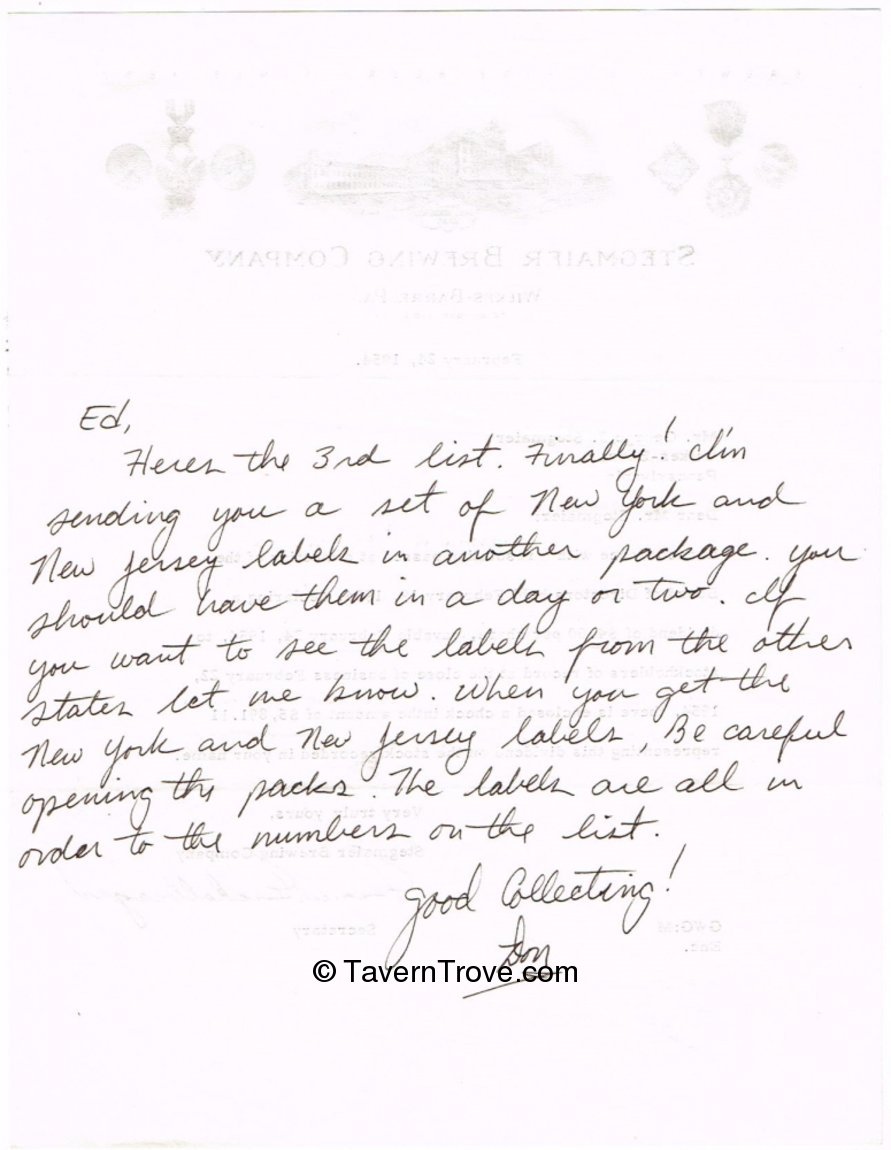 STEGMAIER BREWING COMPANY
WILKES-BARRE, PA.
February 24, 1954.
Ed,
Heres the 3rd list. Finally! I'm
sending you a set of New York and
New Jersey labels in another package. you
should have them in a day or two. If
you want to see the labels from the other
states let me know. When you get the
New York and New Jersey labels, Be careful
opening the packs. The labels are all in
order to the numbers on the list.
Good Collecting!
Don
Very truly yours,
Stegmaier Brewing Company
Secretary
GWG:M
Enc.
© TavernTrove.com